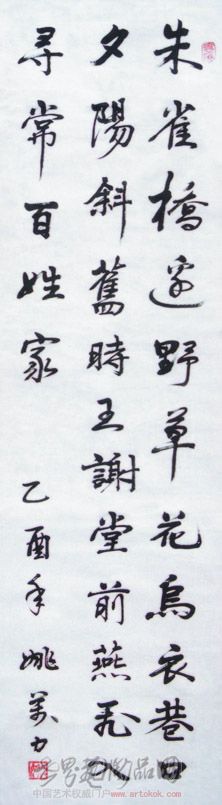 朱雀橋邊野草花烏衣巷口
夕陽斜舊時王謝堂前燕飛入
尋常百姓家
乙酉年姚萬
中国艺术权威门户 www.artokok.com